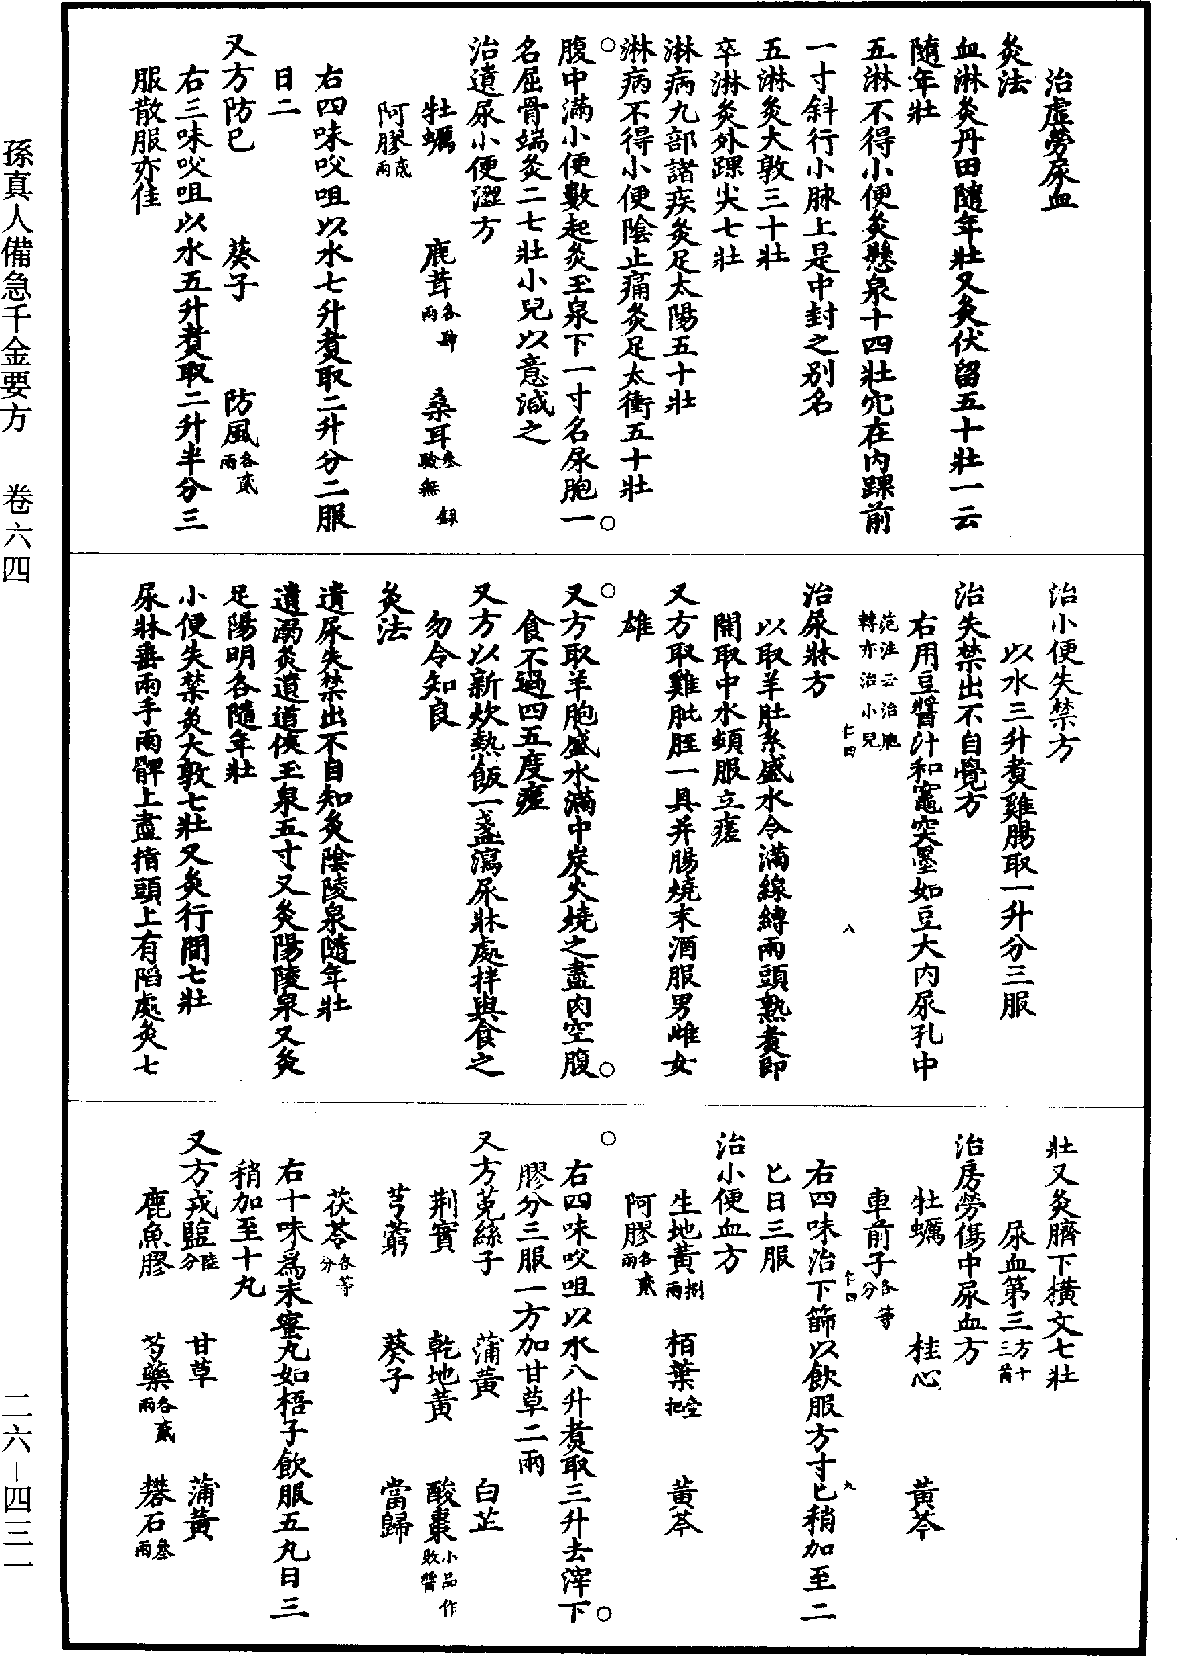 孫真人備急千金要方　卷六四
二六－四三一
治虛勞尿血
灸法
血淋灸丹田隨年壯又灸伏留五十壯一云
隨年壯
五淋不得小便灸懸泉十四壯穴在內踝前
一寸斜行小脉上是中封之別名
五淋灸大敦三十壯
卒淋灸外踝尖七壯
淋病九部諸疾灸足太陽五十壯
淋病不得小便陰止痛灸足太衝五十壯
○腹中滿小便數起灸玉泉下一寸名尿胞一○
名屈骨端灸二七壯小兒以意減之
治遺尿小便澀方
牡蠣　鹿茸各肆兩　桑耳叁
阿膠貳兩
右四味㕮咀以水七升煮取二升分二服
日二
又方防已　葵子　防風各貳兩
右三味㕮咀以水五升煮取二升半分三
服散服亦佳
治小便失禁方
以水三升煮雞腸取一升分三服
治失禁出不自覺方
右用豆醬汁和竈突墨如豆大內尿孔中
范汪云治胞轉亦治小兒
治尿牀方
以取羊肚系盛水令滿線縛兩頭熟煮即
開取中水頓服立瘥
又方取雞肶胵一具并腸燒末酒服男雌女
雄
○又方取羊胞盛水滿中炭火燒之盡肉空腹○
食不過四五度瘥
又方以新炊熱飯一盞瀉尿牀處拌與食之
勿令知良
灸法
遺尿失禁出不自知灸陰陵泉隨年壯
遺溺灸遺道俠玉泉五寸又灸陽陵泉又灸
足陽明各隨年壯
小便失禁灸大敦七壯又灸行間七壯
尿牀垂兩手兩髀上盡指頭上有陷處灸七
壯又灸臍下橫文七壯
尿血第三方十三首
治房勞傷中尿血方
牡蠣　桂心　黃芩
車前子各等分
右四味治下篩以飲服方寸匕稍加至二
匕日三服
治小便血方
生地黃捌兩　栢葉壹把　黃芩
阿膠各貳兩
○右四味㕮咀以水八升煮取三升去滓下○
膠分三服一方加甘草二兩
又方菟絲子　蒲黃　白芷
荆實　乾地黃　酸棗小品作敗醬
芎藭　葵子　當歸
茯苓各等分
右十味爲末蜜丸如梧子飲服五丸日三
稍加至十丸
又方戎鹽陸分　甘草　蒲黃
鹿魚膠　芍藥各貳兩　礬石叁兩